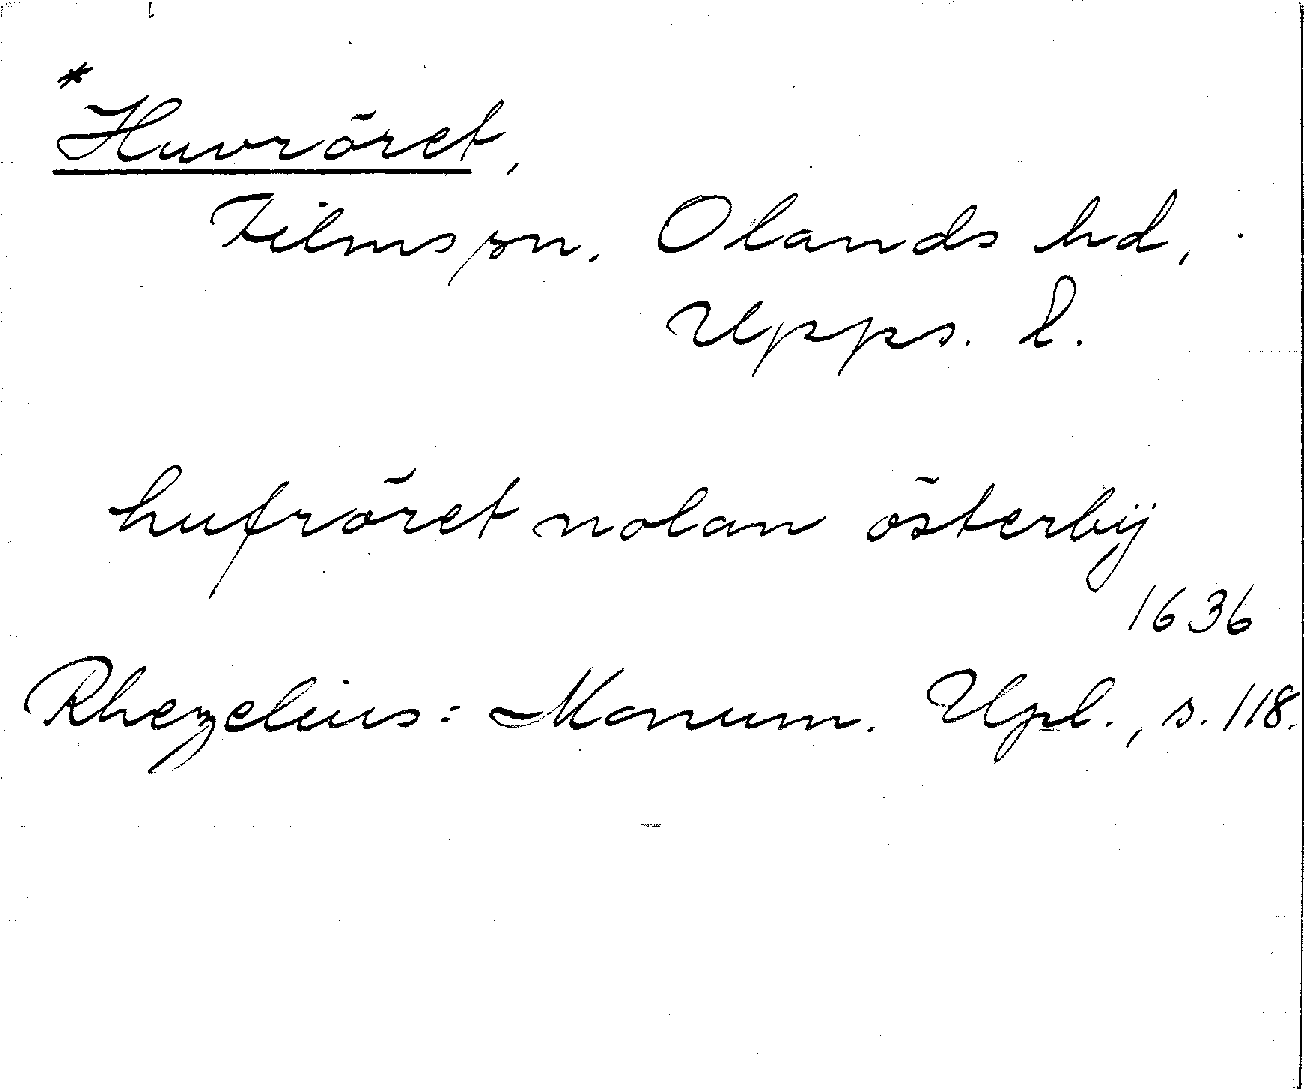 *
Huvröret,
Films sn. Olands hd,
Upps. l.
hufröret nolan österbÿ
1636
Rhezelius: Monum. Upl., s. 118.